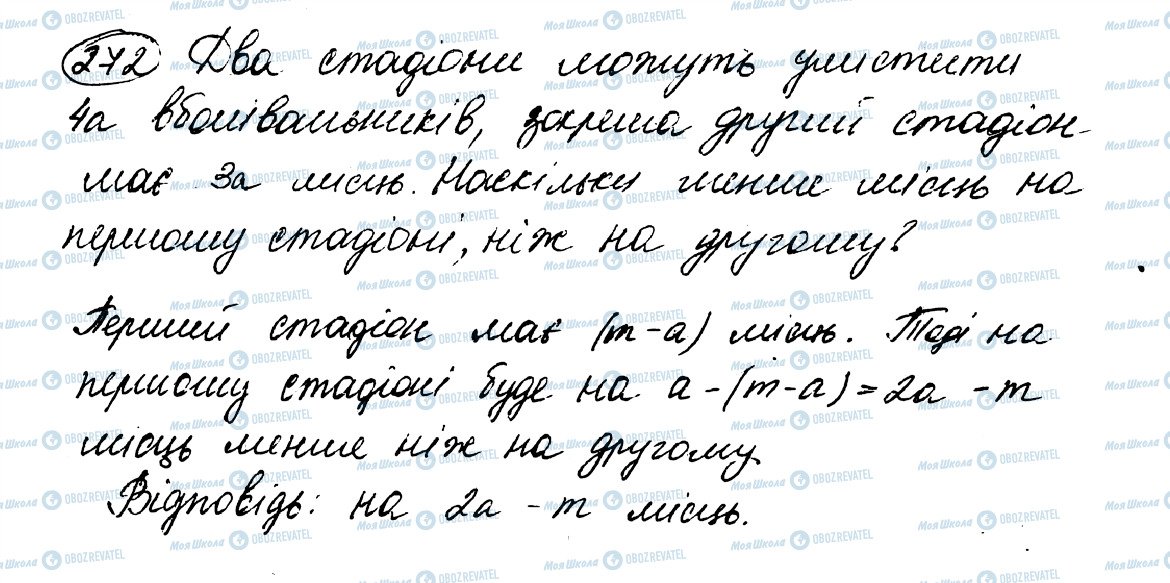 272 Два стадіони можуть умістити
4a вболівальників, зокрема другий стадіон
має 3a місць. Наскільки менше місць на
першому стадіоні, ніж на другому?
Перший стадіон має (m-a) місць. Тоді на
першому стадіоні буде на a-(m-a)=2a-m
місць менше ніж на другому
Відповідь: на 2a-m місць.